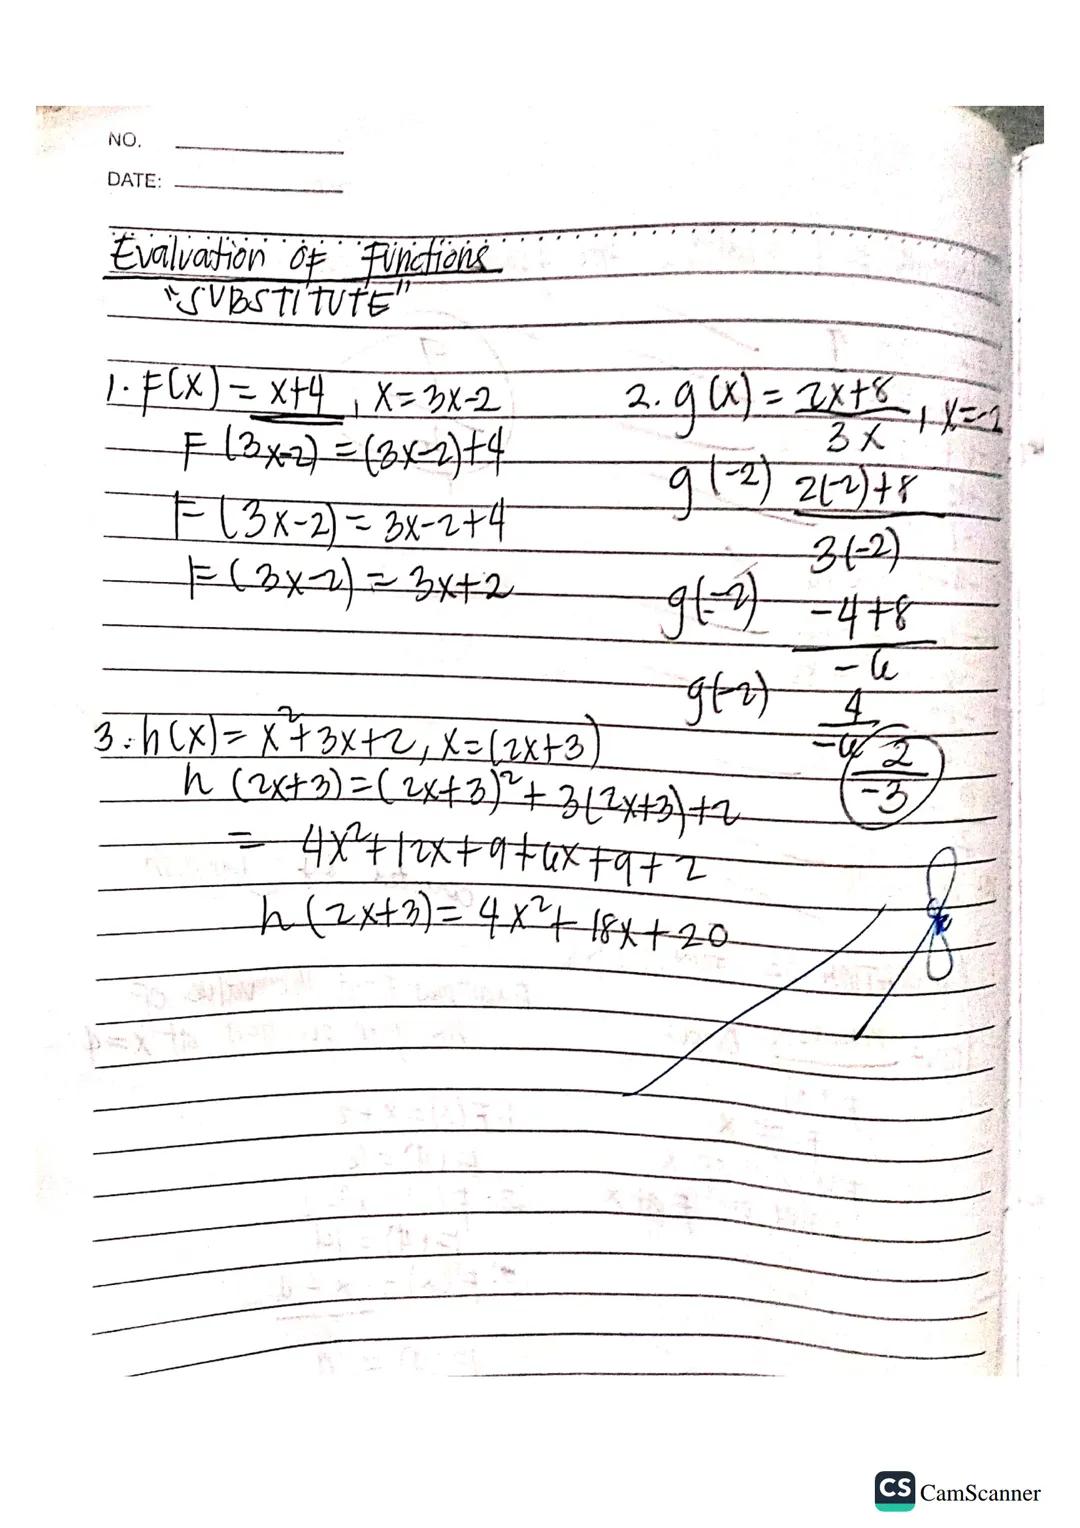 NO.
DATE:
Evaluation of Functions
"SUBSTITUTE"
1. F(x) = x+4, x = 3x-2
F(3x-2) = (3x-2)+4
F(3x-2) = 3x-2+4
F(3x-2) = 3x+2
2. g(x) = 2x+8 / 3x, x=-2
g(-2) 2(-2)+8 / 3(-2)
g(-2) -4+8 / -6
g(-2) 4 / -6
2 / -3
3. h(x) = x²+3x+2, x=(2x+3)
h(2x+3) = (2x+3)²+3(2x+3)+2
= 4x²+12x+9+6x+9+2
h(2x+3) = 4x²+18x+20
CS CamScanner